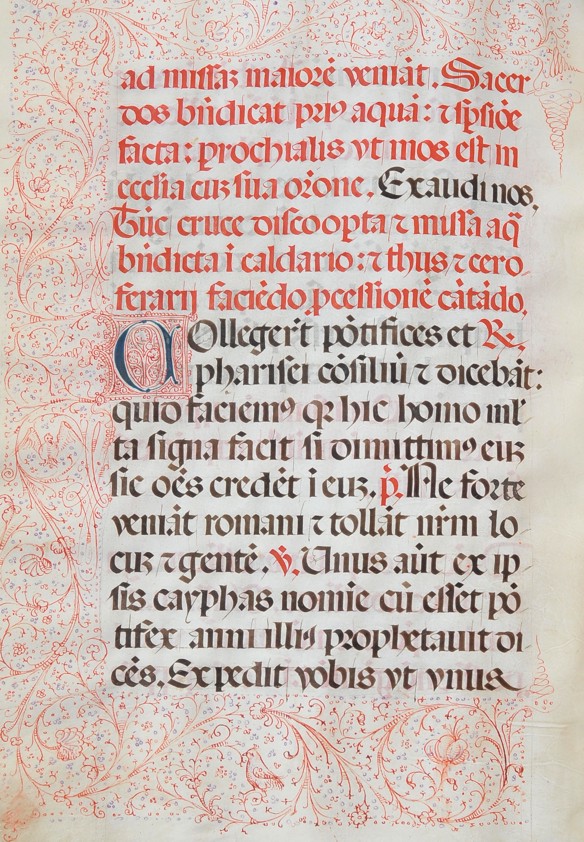 ad missaꝫ maiorē veniāt. Sacer
dos bn̄dicat priꝰ aquā: ⁊ ꝑsiōe
facta: ꝓrochialis vt mos est in
ecclīa cuꝫ sua orōne. Exaudi nos.
Tūc cruce discoopta ⁊ missa aq̄
bn̄dicta ī caldario: ⁊ thus ⁊ cero
ferarij faciēdo ꝓcessionē cātādo.
COllegerᷣt pōtifices et R.
pharisei cōsiliū ⁊ dicebāt:
quid faciemꝰ qꝛ hic homo ml̄
ta signa facit si dimittimꝰ euꝫ
sic oēs credēt ī euꝫ. p̄. Ne forte
veniāt romani ⁊ tollāt nr̄m lo
cuꝫ ⁊ gentē. v̄. Unus aūt ex ip
sis cayphas nomīe cū esset pō
tifex anni illiꝰ prophetauit di
cēs. Expedit vobis vt vnus